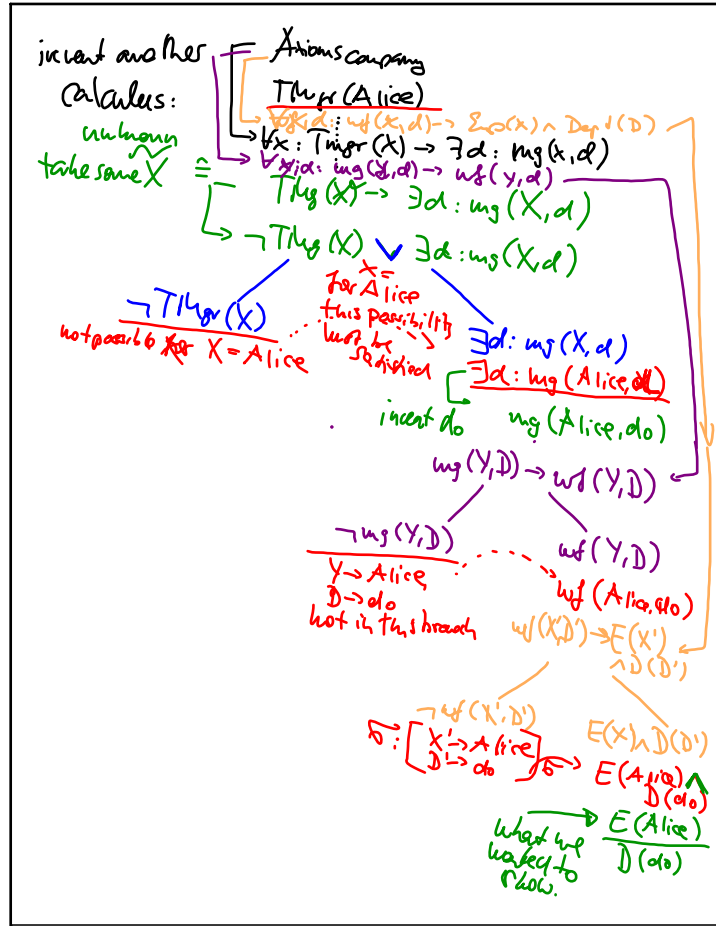 invent another
calculus:
Axioms company
TMgr(Alice)
∀x,d: wf(x,d) → Emp(x) ∧ Dept(D)
∀x: TMgr(X) → ∃d: mg(x,d)
∀y,d: mg(y,d) → wf(y,d)
unknown
take some X ≙
TMg(X) → ∃d: mg(X,d)
¬TMg(X) ∨ ∃d: mg(X,d)
¬TMgr(X)
not possible for X = Alice
X =
for Alice
this possibility
must be
satisfied
∃d: mg(X,d)
∃d: mg(Alice,d)
invent do
mg(Alice,do)
mg(Y,D) → wf(Y,D)
¬mg(Y,D)
wf(Y,D)
Y → Alice
D → do
not in this branch
wf(Alice,do)
wf(X',D') → E(X')
∧ D(D')
¬wf(X',D')
E(X) ∧ D(D')
σ: [X' → Alice
D' → do] σ
E(Alice) ∧
D(do)
what we
wanted to
show.
E(Alice)
D(do)